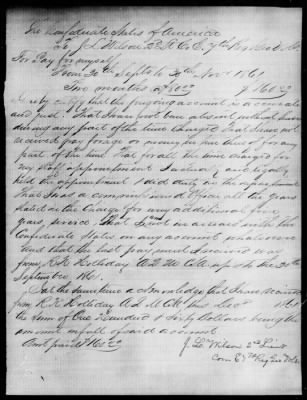 The Confederate States of America
To J. L. Wilson 2d Lt Co E 7th
For Pay for myself
From 30th Sept to 30th Nov 1861
Two months @ 80.00 $ 160.00
I certify that the foregoing account is accurate
and just. That I have not been absent without leave
during any part of the time charged that I have not
received pay forage or money in lieu thereof for any
part of the time that for all the time charged for
my staff appointment I actually and legally
held the appointment & did duty in the department
That I was a commissioned officer all the years
stated in the charge for any additional
years service That I am not in arrears with the
Confederate States on any account whatsoever
And that the last pay I received was
from R. R. Holliday A.Q.M. C.S.A up to the 30th
September 1861.
I at the same time acknowledge that I have received
from R. R. Holliday A.Q.M. CA this Decr 1861
the sum of One Hundred & Sixty Dollars being the
amount in full of said account
Amt paid $160.00
J. L. Wilson 2nd Lieut
Com E 7th Reg